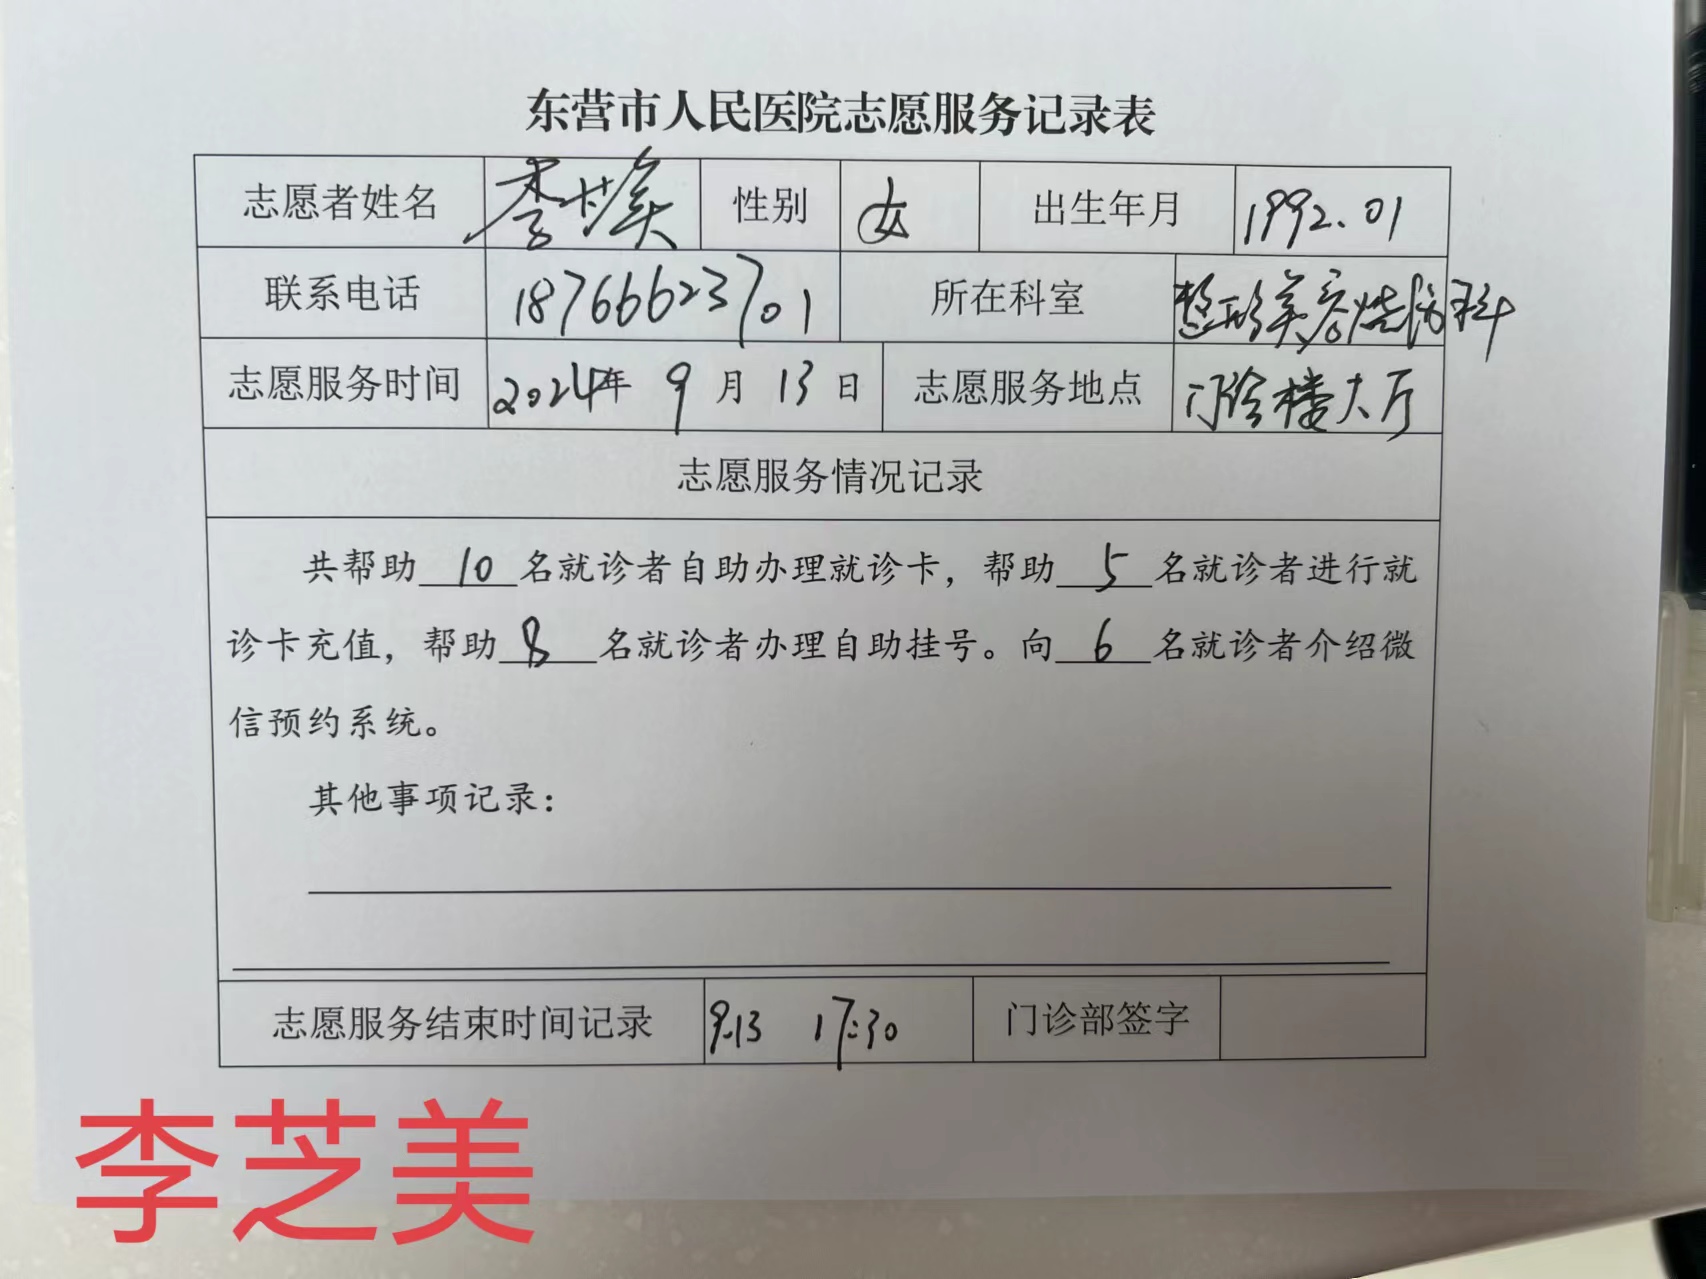 东营市人民医院志愿服务记录表
志愿者姓名 李芝美 性别 女 出生年月 1992.01
联系电话 18766623701 所在科室 整形美容烧伤科
志愿服务时间 2024年 9 月 13 日 志愿服务地点 门诊楼大厅
志愿服务情况记录
共帮助 10 名就诊者自助办理就诊卡，帮助 5 名就诊者进行就
诊卡充值，帮助 8 名就诊者办理自助挂号。向 6 名就诊者介绍微
信预约系统。
其他事项记录：
志愿服务结束时间记录 9.13 17:30 门诊部签字
李芝美